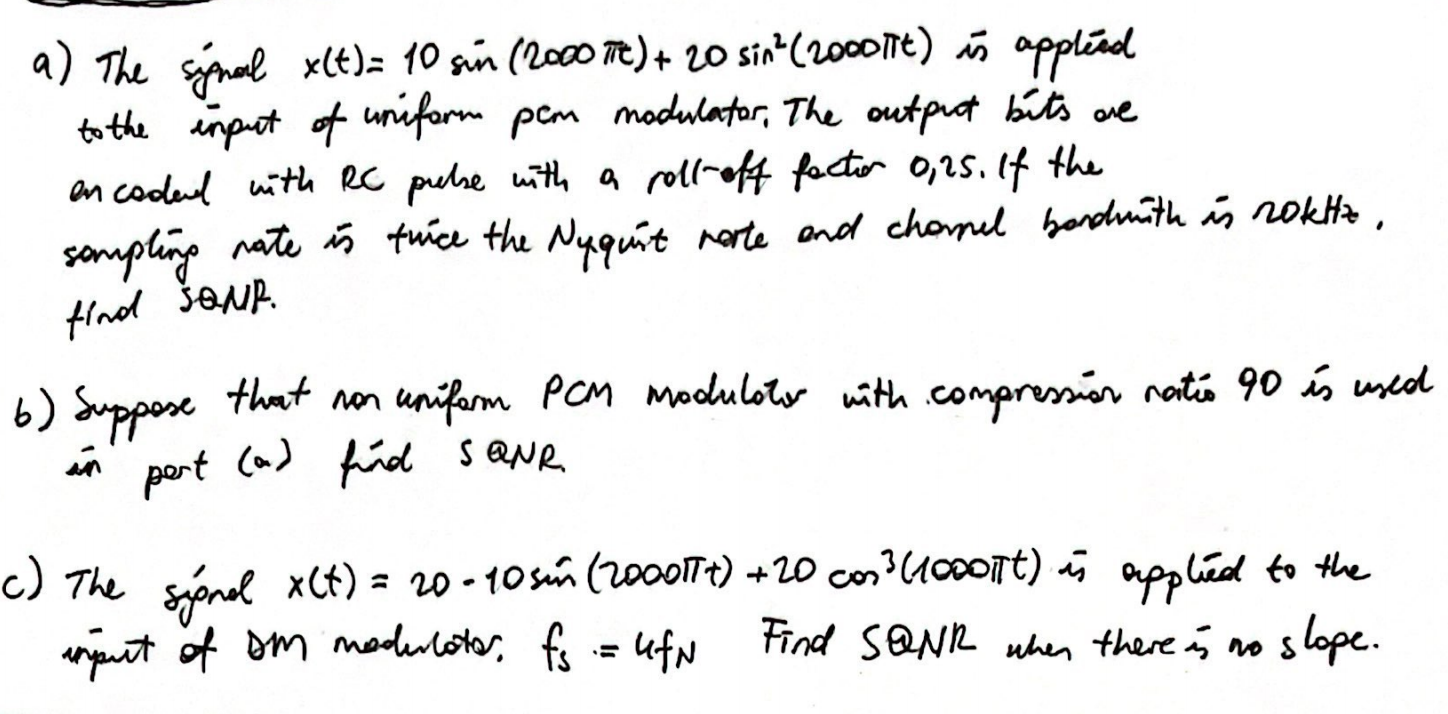 a) The signal x(t)= 10 sin (2000 πt)+ 20 sin²(2000πt) is applied
to the input of uniform pcm modulator, The output bits are
encoded with RC pulse with a roll-off factor 0,25. If the
sampling rate is twice the Nyquist rate and channel bandwith is 20kHz,
find SQNR.
b) Suppose that non uniform PCM modulator with compression ratio 90 is used
in part (a) find SQNR.
c) The signal x(t) = 20 - 10 sin (2000πt) +20 cos³(1000πt) is applied to the
input of DM modulator. fs = 4fN Find SQNR when there is no slope.